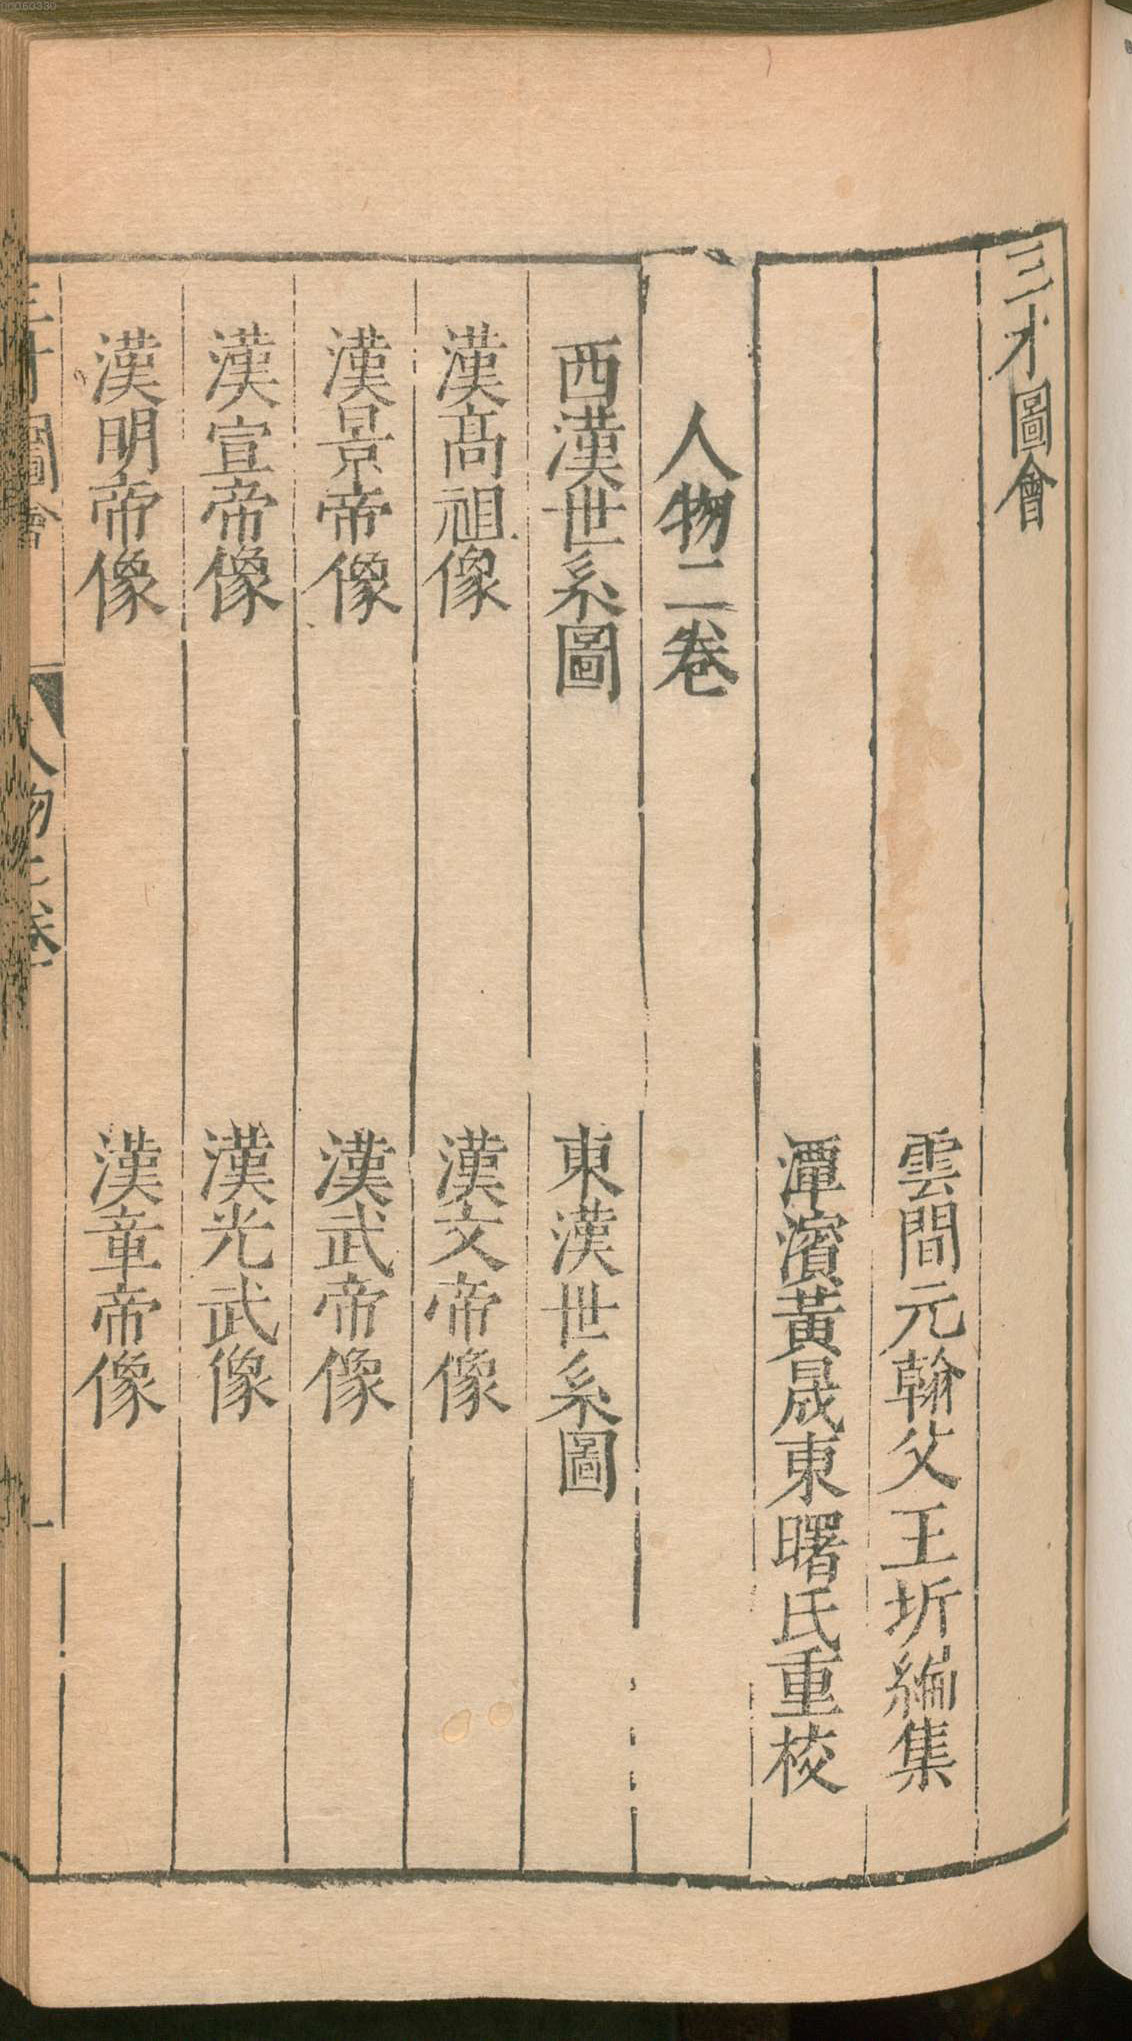 三才圖會
雲間元翰父王圻編集
潭濱黃晟東曙氏重校
人物二卷
西漢世系圖 東漢世系圖
漢高祖像 漢文帝像
漢景帝像 漢武帝像
漢宣帝像 漢光武像
漢明帝像 漢章帝像
00060330